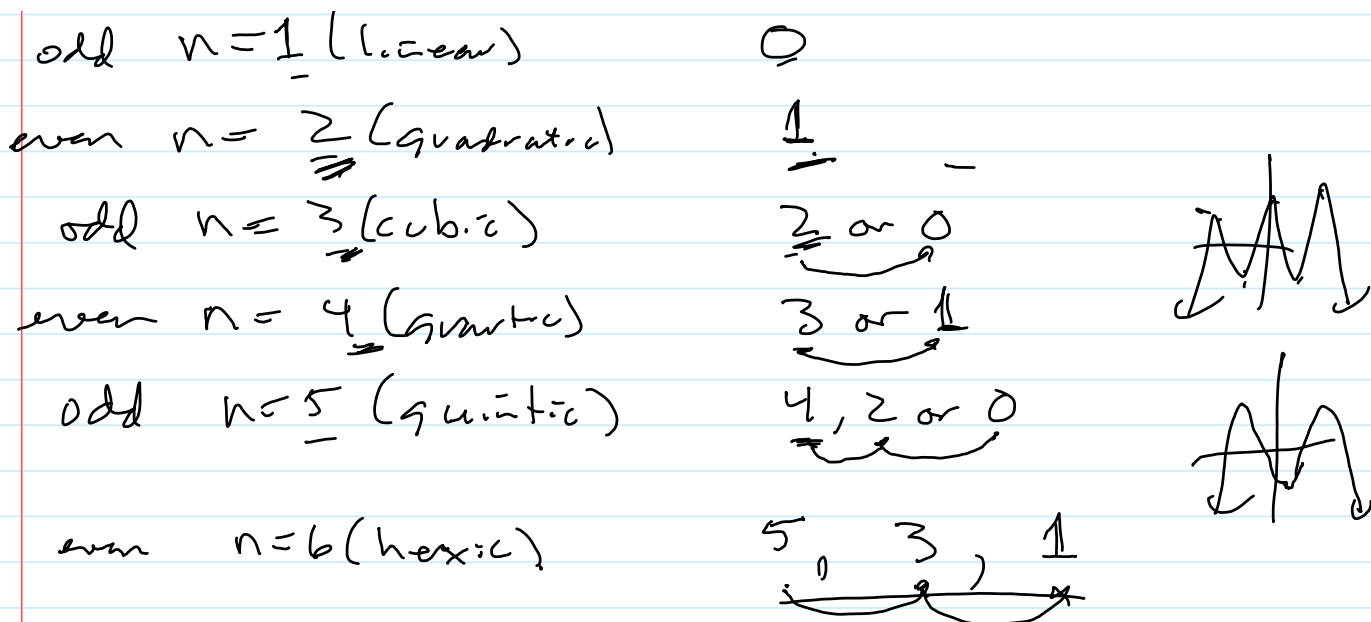 odd n=1 (linear) 0
even n= 2 (quadratic) 1
odd n= 3 (cubic) 2 or 0
even n= 4 (quartic) 3 or 1
odd n=5 (quintic) 4, 2 or 0
even n=6 (hexic) 5, 3, 1